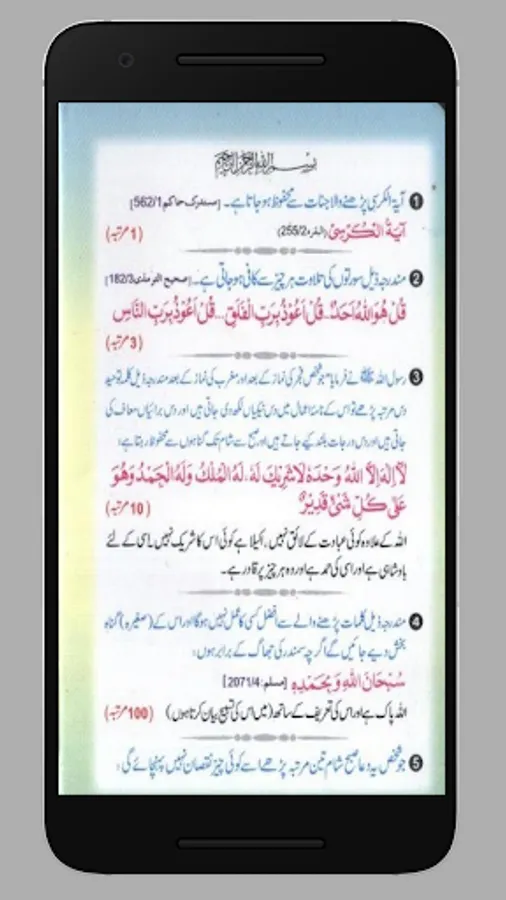 بسم الله الرحمن الرحيم
❶ آیۃ الکرسی پڑھنے والا جنات سے محفوظ ہو جاتا ہے۔ [مستدرک حاکم 562/1]
آيَةُ الْكُرْسِيّ (البقرہ 255/2) (1 مرتبہ)
❷ مندرجہ ذیل سورتوں کی تلاوت ہر چیز سے کافی ہو جاتی ہے۔ [صحیح الترمذی 182/3]
قُلْ هُوَ اللّٰهُ اَحَدٌ... قُلْ اَعُوْذُ بِرَبِّ الْفَلَقِ... قُلْ اَعُوْذُ بِرَبِّ النَّاسِ
(3 مرتبہ)
❸ رسول اللہ ﷺ نے فرمایا "جو شخص فجر کی نماز کے بعد اور مغرب کی نماز کے بعد مندرجہ ذیل کلمہ توحید
دس مرتبہ پڑھے تو اس کے نامۂ اعمال میں دس نیکیاں لکھ دی جاتی ہیں اور دس برائیاں معاف کی
جاتی ہیں اور دس درجات بلند کیے جاتے ہیں اور صبح سے شام تک گناہوں سے محفوظ رہتا ہے:
لَآ اِلٰهَ اِلَّا اللّٰهُ وَحْدَهٗ لَا شَرِيْكَ لَهٗ، لَهُ الْمُلْكُ وَلَهُ الْحَمْدُ وَهُوَ
عَلٰى كُلِّ شَىْءٍ قَدِيْرٌ (10 مرتبہ)
اللہ کے علاوہ کوئی عبادت کے لائق نہیں، اکیلا ہے کوئی اس کا شریک نہیں۔ اسی کے لئے
بادشاہی ہے اور اسی کی حمد ہے اور وہ ہر چیز پر قادر ہے۔
❹ مندرجہ ذیل کلمات پڑھنے والے سے افضل کسی کا عمل نہیں ہوگا اور اس کے (صغیرہ) گناہ
بخش دیے جائیں گے اگرچہ سمندر کی جھاگ کے برابر ہوں:
سُبْحَانَ اللّٰهِ وَبِحَمْدِهٖ [مسلم: 2071/4]
اللہ پاک ہے اور اس کی تعریف کے ساتھ (میں اس کی تسبیح بیان کرتا ہوں) (100 مرتبہ)
❺ جو شخص یہ دعا صبح شام تین مرتبہ پڑھے اسے کوئی چیز نقصان نہیں پہنچائے گی: